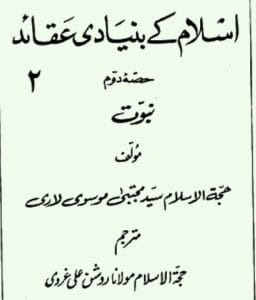 اسلام کے بنیادی عقائد
حصۂ دوم
۲
نبوت
مؤلف
حجۃ الاسلام سید مجتبیٰ موسوی لاری
مترجم
حجۃ الاسلام مولانا روشن علی غروی